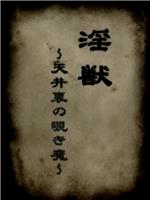 淫獣
～天井裏の覗き魔～